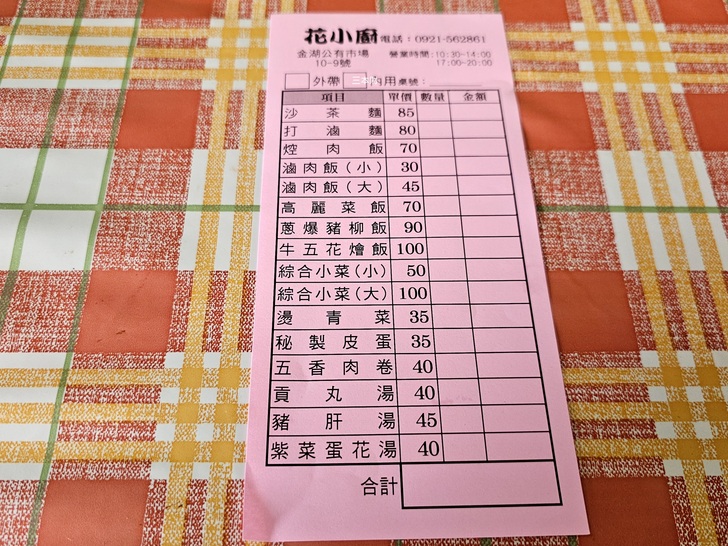 花小廚 電話：0921-562861
金湖公有市場 營業時間：10:30~14:00
10-9號 17:00~20:00
外帶 內用 桌號：
項目 單價 數量 金額
沙茶麵 85
打滷麵 80
焢肉飯 70
滷肉飯(小) 30
滷肉飯(大) 45
高麗菜飯 70
蔥爆豬柳飯 90
牛五花燴飯 100
綜合小菜(小) 50
綜合小菜(大) 100
燙青菜 35
秘製皮蛋 35
五香肉卷 40
貢丸湯 40
豬肝湯 45
紫菜蛋花湯 40
合計